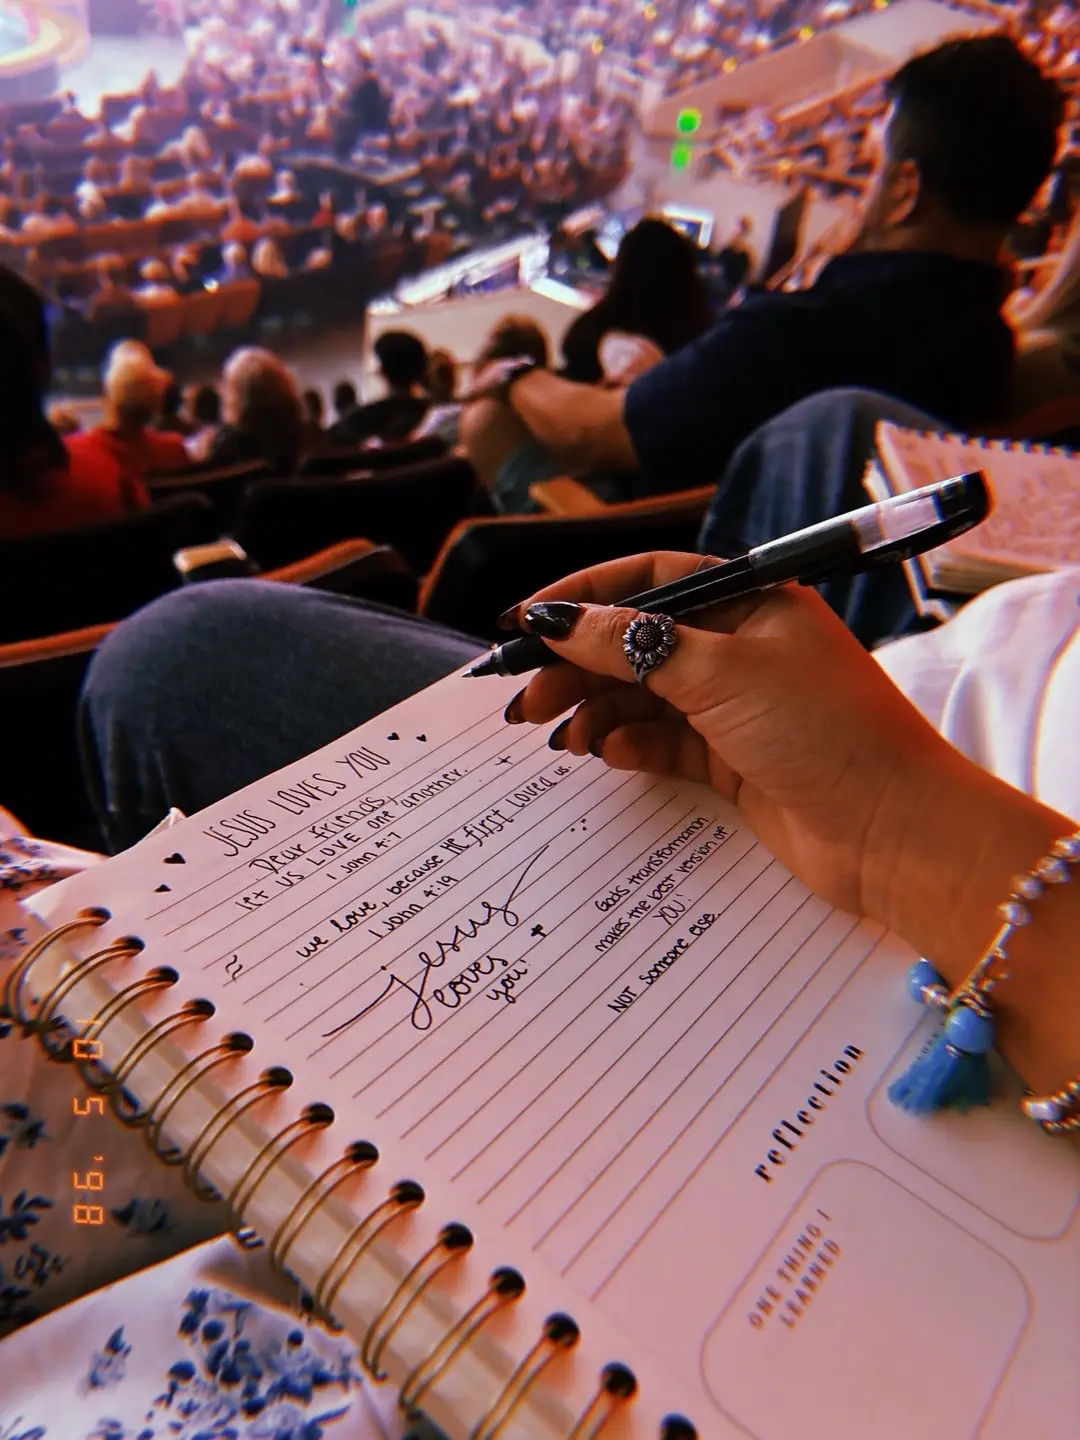 JESUS LOVES YOU
Dear friends,
let us LOVE one another.
1 John 4:7
we love, because He first loved us.
1 John 4:19
Jesus
loves
you!
Gods transformation
makes the best version of
YOU!
NOT someone else.
reflection
ONE THING I
LEARNED
10 5 '98